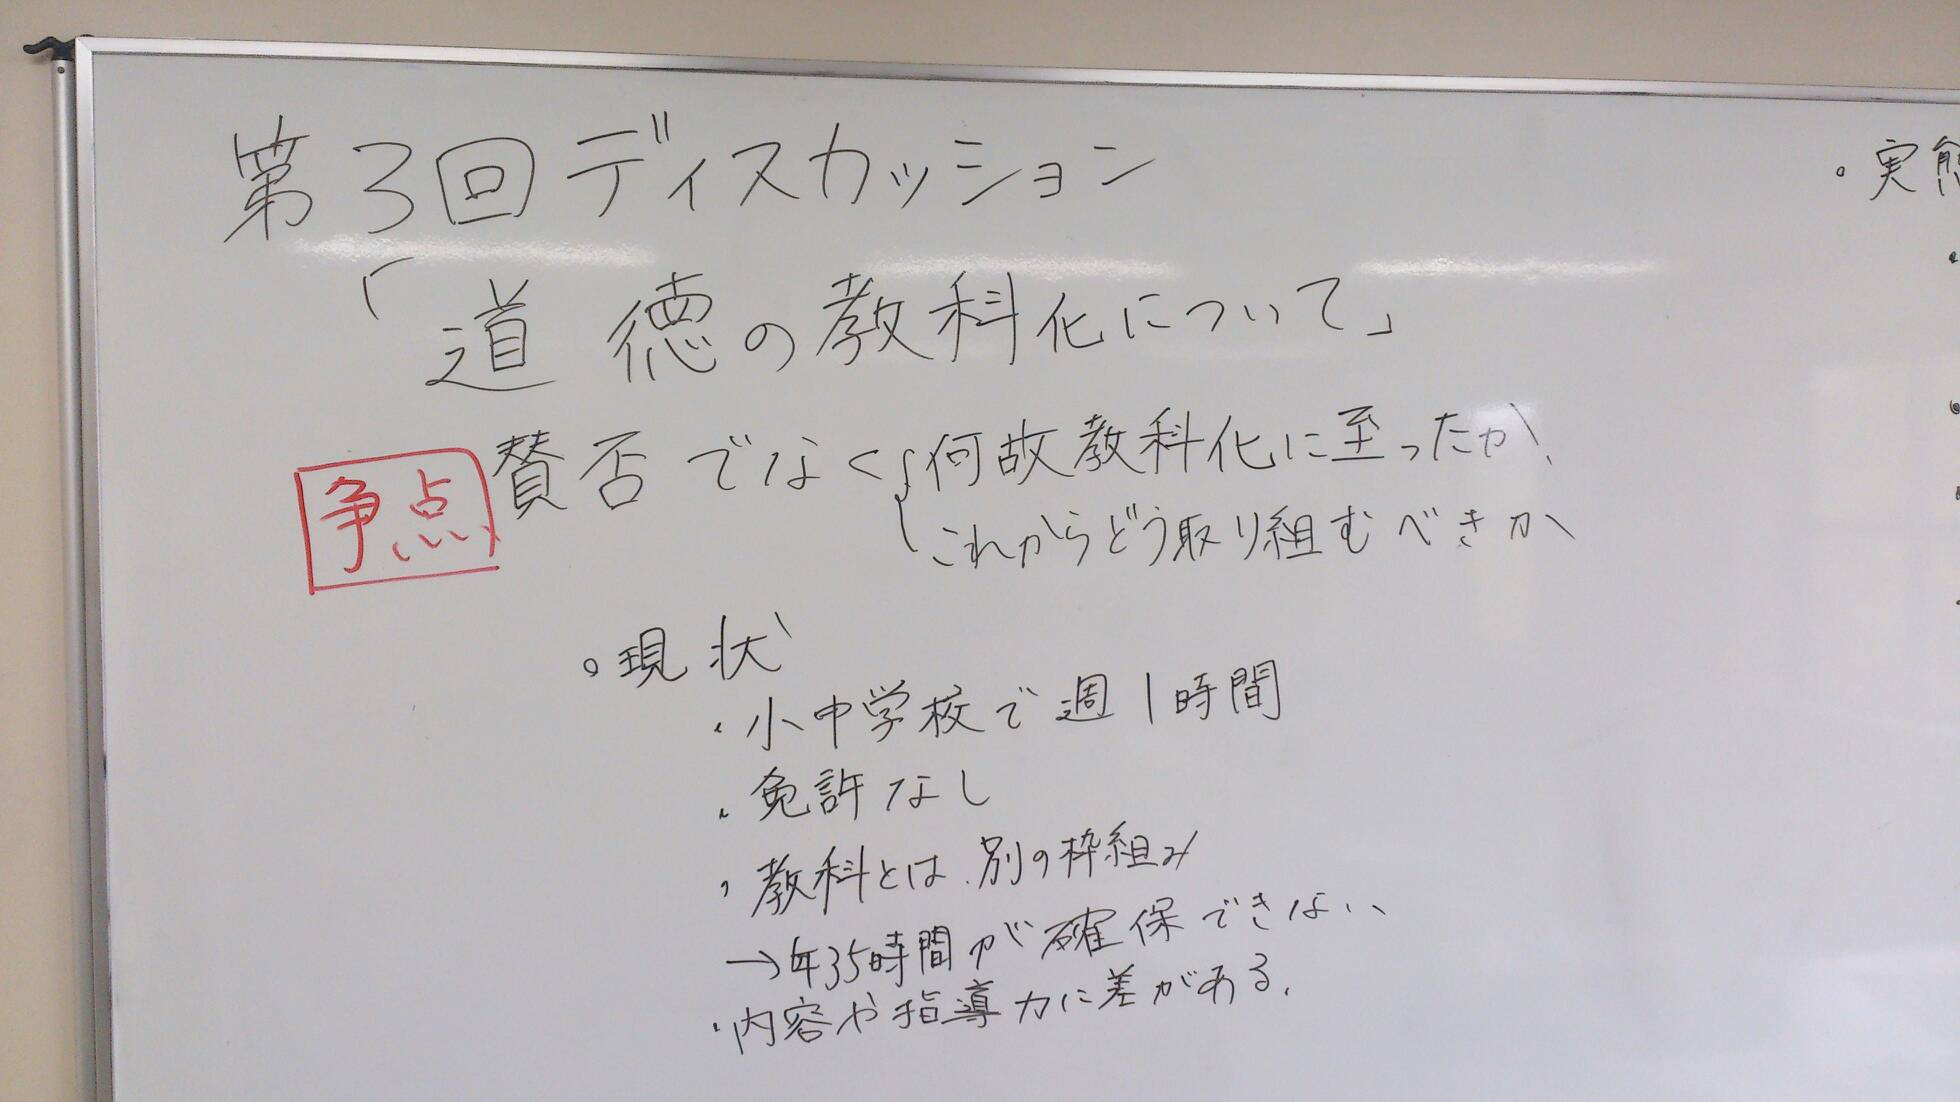 第3回ディスカッション
「道徳の教科化について」
争点
賛否でなく
何故教科化に至ったか、
これからどう取り組むべきか
。現状
・小中学校で週1時間
・免許なし
・教科とは別の枠組み
→年35時間が確保できない
・内容や指導力に差がある.
。実態